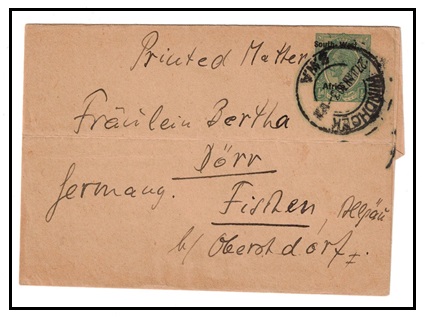 Printed Matter
South West
Africa
WINDHOEK
SWA
Fräulein Bertha
Dörr
Germany.
Fischen, Allgäu
b/ Oberstdorf.